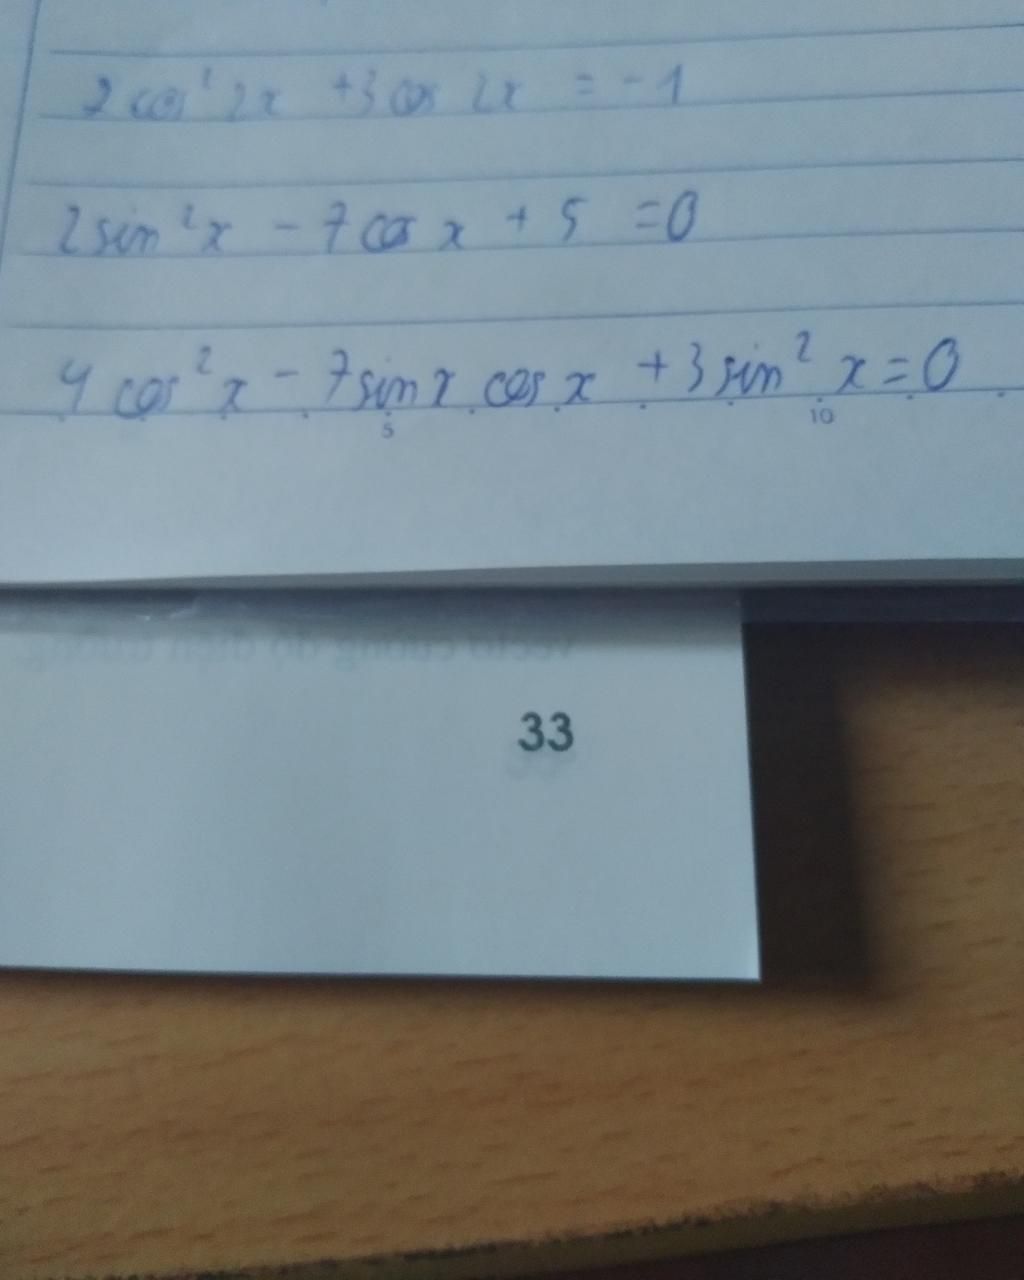 2 cos²2x + 3 cos 2x = -1
2 sin²x - 7 cos x + 5 = 0
4 cos²x - 7 sin x cos x + 3 sin²x = 0
5 10
33